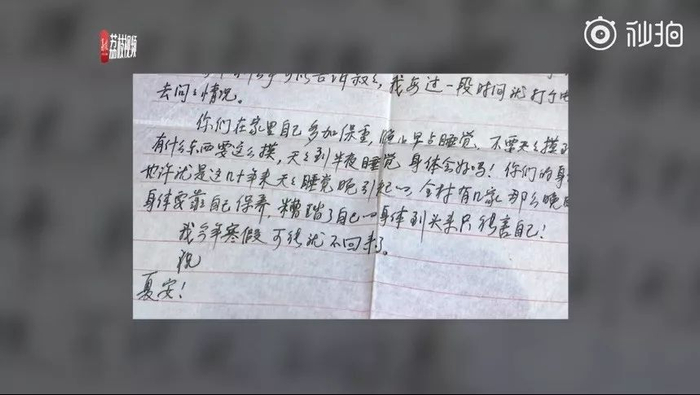 荔枝视频
秒拍
我每过一段时间就打个电
去问问情况。
你们在家里自己多加保重，晚上早点睡觉、不要天天摸
有什么东西要这么摸，天天到半夜睡觉 身体会好吗！你们的身
也许就是这几十年来天天睡觉晚引起的，全村有几家那么晚
身体要靠自己保养，糟蹋了自己的身体到头来只能害自己！
我今年寒假可能就不回来了。
祝
夏安！